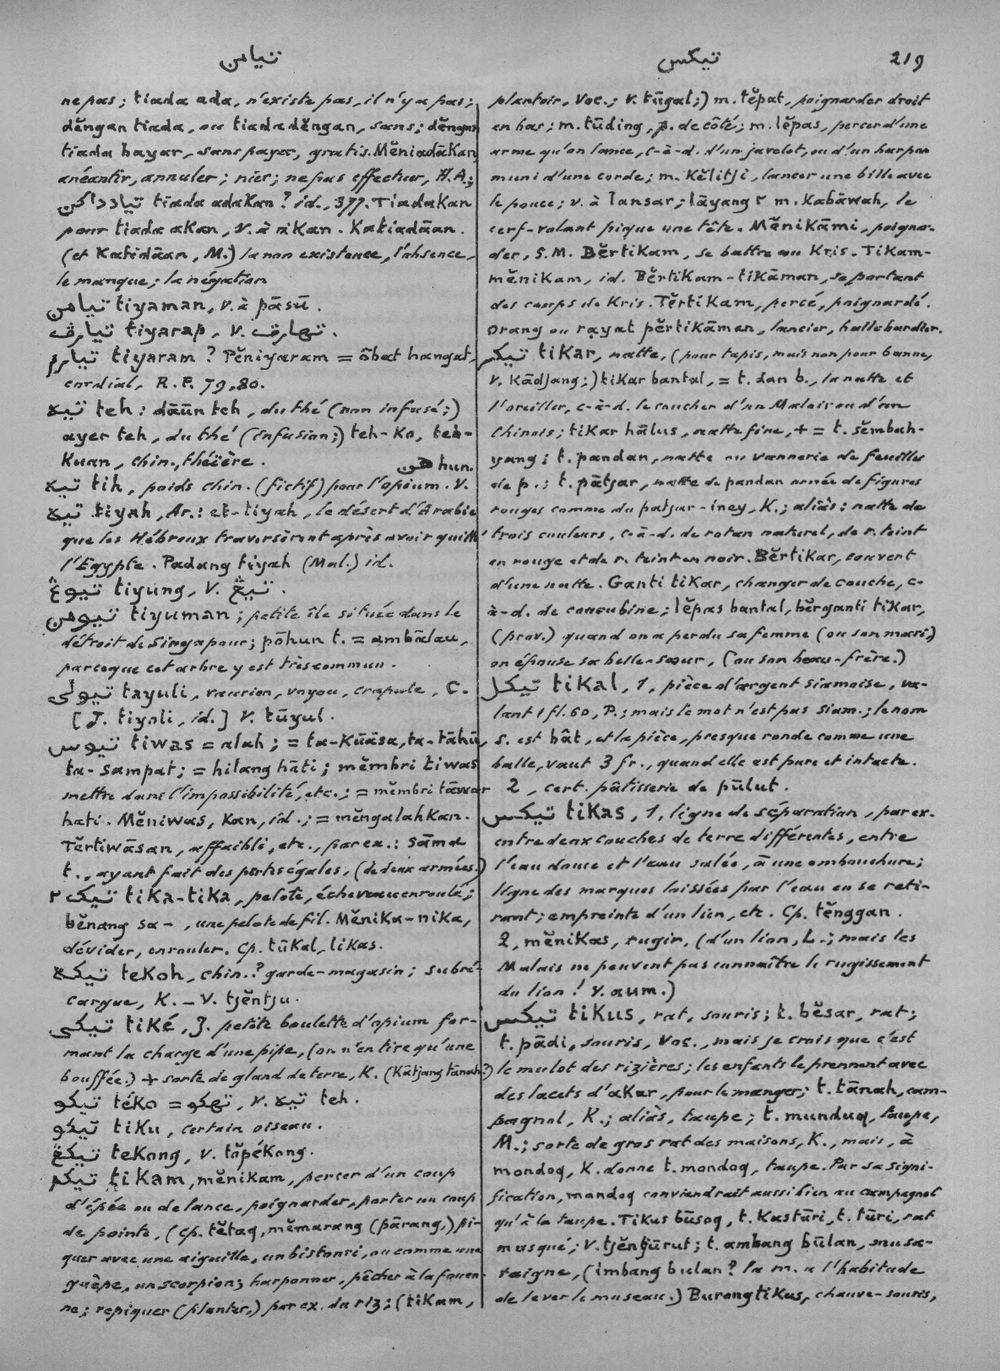 تيامن
تيكس
219
ne pas; tiada ada, n'existe pas, il n'y a pas;
dĕngan tiada, ou tiada dĕngan, sans; dĕngan
tiada bayar, sans payer, gratis. Mĕniadākan,
anéantir, annuler; nier; ne pas effectuer, H.A.;
تياداكن tiada adakan? id., 377. Tiadakan
pour tiada akan, V. à akan. Katiadāan.
(et Katidāan, M.) la non existence, l'absence,
le manque; la négation
تيامن tiyaman, v. à pāsū.
تيارف tiyarap, v. تهارف.
تيارم tiyaram? Pĕniyaram = ôbat hangat,
cordial, R.P. 79, 80.
تيه teh: dāūn teh, du thé (non infusé;)
ayer teh, du thé (infusion;) teh-ko, teh-
kuan, chin., théière.
تيه tih, poids chin. (fictif) pour l'opium. V. هن hun.
تيه tiyah, Ar.: et-tiyah, le désert d'Arabie
que les Hébreux traversèrent après avoir quitté
l'Egypte. Padang tiyah (Mal.) id.
تيوڠ tiyung, V. تيڠ.
تيومن tiyuman; petite île située dans le
détroit de Singapour; pōhun t. = ambālau,
parceque cet arbre y est très commun.
تيولى tayuli, vaurien, voyou, crapule, C.
[J. tiyoli, id.] V. tūyul.
تيوس tiwas = alah; = ta-kūāsa, ta-tāhū,
ta-sampat; = hilang hāti; mĕmbri tiwas
mettre dans l'impossibilité, etc.; = mĕmbri tāwar
hati. Mĕniwas, kan, id.; = mĕngalahkan.
Tĕrtiwāsan, affaibli, etc., par ex.: sāma
t., ayant fait des pertes égales, (de deux armées.)
تيك٢ tika-tika, pelote, écheveau enroulé;
bĕnang sa-, une pelote de fil. Mĕnika-nika,
dévider, enrouler. Cp. tūkal, likas.
تيكه tekoh, chin.? garde-magasin; subré-
cargue, K. – V. tjĕntju.
تيكى tiké, J. petite boulette d'opium for-
mant la charge d'une pipe, (on n'en tire qu'une
bouffée.) + sorte de gland de terre, K. (kātjang tānah?)
تيكو téko = تهكو, v. تيه teh.
تيكو tiku, certain oiseau.
تيكڠ tekong, v. tōpékong.
تيكم tikam, mĕnikam, percer d'un coup
d'épée ou de lance, poignarder, porter un coup
de pointe, (Cp. tĕtaq, mĕmarang (pārang,) pi-
quer avec une aiguille, un bistouri, ou comme une
guêpe, un scorpion; harponner, pêcher à la fouen-
ne; repiquer (planter,) par ex. du riz; (tikam,
plantoir, Voc.; v. tūgal;) m. tĕpat, poignarder droit
en bas; m. tūding, p. de côté; m. lĕpas, percer d'une
arme qu'on lance, c-à-d. d'un javelot, ou d'un harpon
muni d'une corde; m. kĕlitji, lancer une bille avec
le pouce; v. à lansar; lāyang٢ m. kabāwah, le
cerf-volant pique une tête. Mĕnikāmi, poignar-
der, S.M. Bĕrtikam, se battre au kris. Tikam-
mĕnikam, id. Bĕrtikam-tikāman, se portant
des coups de kris. Tĕrtikam, percé, poignardé.
Orang ou rayat pĕrtikāman, lancier, hallebardier.
تيكر tikar, natte, (pour tapis, mais non pour banne,
v. kādjang;) tikar bantal, = t. dan b., la natte et
l'oreiller, c-à-d. le coucher d'un Malais ou d'un
Chinois; tikar hālus, natte fine, + = t. sĕmbah-
yang; t. pandan, natte ou vannerie de feuilles
de p.; t. pātjar, natte de pandan ornée de figures
rouges comme du patjar-iney, K.; aliàs: natte de
trois couleurs, c-à-d. de rotan naturel, de r. teint
en rouge et de r. teint en noir. Bĕrtikar, couvert
d'une natte. Ganti tikar, changer de couche, c-
à-d. de concubine; lĕpas bantal, bĕrganti tikar,
(prov.) quand on a perdu sa femme (ou son mari,)
on épouse sa belle-sœur, (ou son beau-frère.)
تيكل tikal, 1, pièce d'argent siamoise, va-
lant 1 fl. 60, P.; mais le mot n'est pas siam.; le nom
s. est bât, et la pièce, presque ronde comme une
balle, vaut 3 fr., quand elle est pure et intacte.
2, cert. pâtisserie de pūlut.
تيكس tikas, 1, ligne de séparation, par ex.
entre deux couches de terre différentes, entre
l'eau douce et l'eau salée, à une embouchure;
ligne des marques laissées par l'eau en se reti-
rant; empreinte d'un lien, etc. Cp. tĕnggan.
2, mĕnikas, rugir, (d'un lion, L.; mais les
Malais ne peuvent pas connaître le rugissement
du lion! V. aum.)
تيكس tikus, rat, souris; t. bĕsar, rat;
t. pādi, souris, Voc., mais je crois que c'est
le mulot des rizières; les enfants le prennent avec
des lacets d'akar, pour le manger; t. tānah, cam-
pagnol, K.; aliàs, taupe; t. munduq, taupe,
M.; sorte de gros rat des maisons, K., mais, à
mondoq, K. donne t. mondoq, taupe. Par sa signi-
fication, mondoq conviendrait aussi bien au campagnol
qu'à la taupe. Tikus būsoq, t. kastūri, t. tūri, rat
musqué; V. tjĕntjūrut; t. ambang būlan, musa-
raigne, (imbang bulan? la m. a l'habitude
de lever le museau.) Burong tikus, chauve-souris,